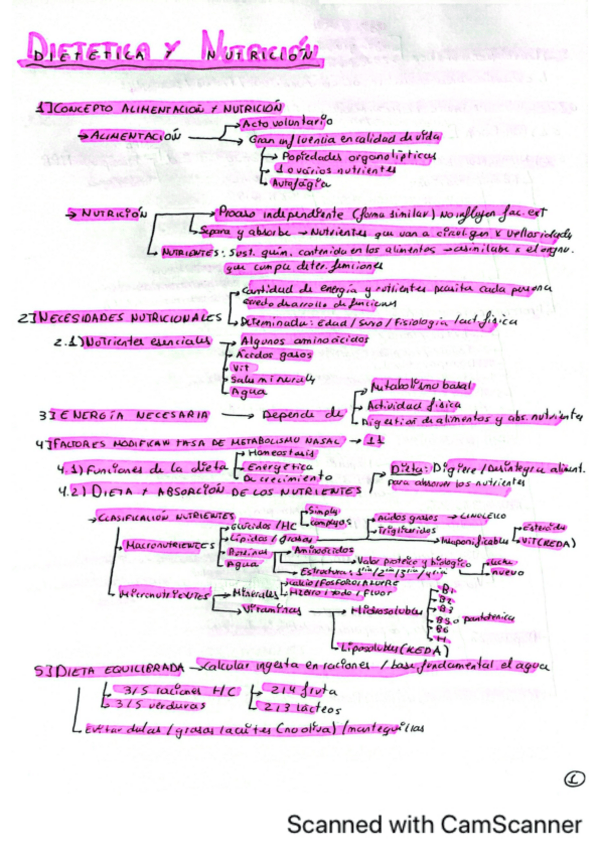 DIETETICA Y NUTRICIÓN
1] CONCEPTO ALIMENTACION Y NUTRICIÓN
→ ALIMENTACIÓN → Acto voluntario
→ Gran influencia en calidad de vida
→ Popiedades organolipticas
→ 1 o varios nutrientes
→ Autofágia
→ NUTRICIÓN → Proceso independiente (forma similar) No influyen fac. ext
→ Separa y absorbe → Nutrientes que van a
→ NUTRIENTES: Sust. quim. contenida en los alimentos →
que cumple deter. funciones
→ Cantidad de energía y nutrientes cada persona
desarrollo de funciones
2] NECESIDADES NUTRICIONALES → Determinada: Edad / Sexo / Fisiologia / act. física
2.1) Nutrientes esenciales → Algunos aminoácidos
→ Ácidos grasos
→ Vit
→ Sales minerales
→ Agua
→ Metabolismo basal
3] ENERGÍA NECESARIA → Depende de → Actividad física
→ Digestion de alimentos y abs. nutrientes
4] FACTORES MODIFICAN TASA DE METABOLISMO NASAL → 11
→ Homeostasis
4.1) Funciones de la dieta → Energética
→ De crecimiento
→ Dieta: Digiere / Desintegra aliment.
para absorver los nutrientes
4.2) DIETA Y ABSORCIÓN DE LOS NUTRIENTES
→ CLASIFICACIÓN NUTRIENTES → Simples
→ Glúcidos / HC → complejos
→ Ácidos grasos → LINOLEICO
→ MACRONUTRIENTES → Lípidos / grasas → Trigliceridos
→ Insaponificables → Esteroide
→ VIT (KEDA)
→ Proteinas → Aminoácidos
→ Valor proteico y biologico → leche
→ huevo
→ Agua → Estructura: 1ria / 2ria / 3ria / 4ria
→ MICRONUTRIENTES → Minerales → Calcio / FOSFORO / AZUFRE
→ Hierro / Yodo / Fluor
→ Vitaminas → Hidrosolubles → B1
→ B2
→ B3
→ B5 o pantotenico
→ B6
→ H
→ Liposolubles (KEDA)
5] DIETA EQUILIBRADA → Calcular ingesta en raciones / base fundamental el agua
→ 3/5 raciones H/C → 2/4 fruta
→ 3/5 verduras → 2/3 lácteos
→ Evitar dulces / grasas / aceites (no oliva) / mantequillas
1
Scanned with CamScanner